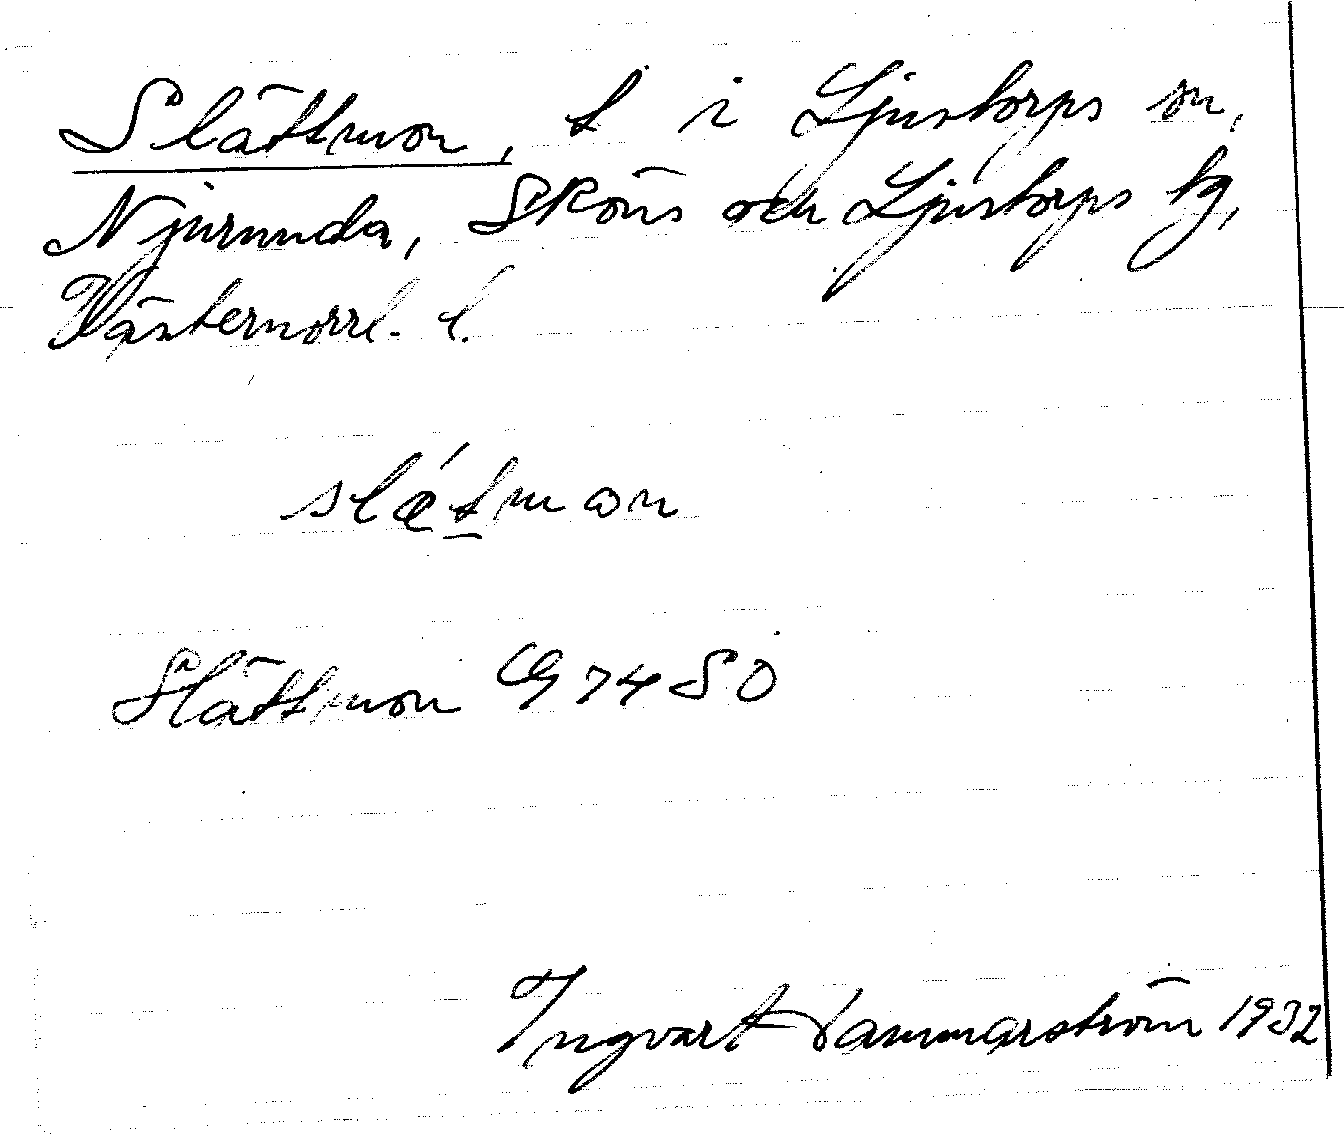 Slättmon, t i Ljustorps sn,
Njurunda, Sköns och Ljustorps tg,
Västernorrl. l.
slǽtmon
Slättmon G 74 SO
Ingvart Hammarström 1932